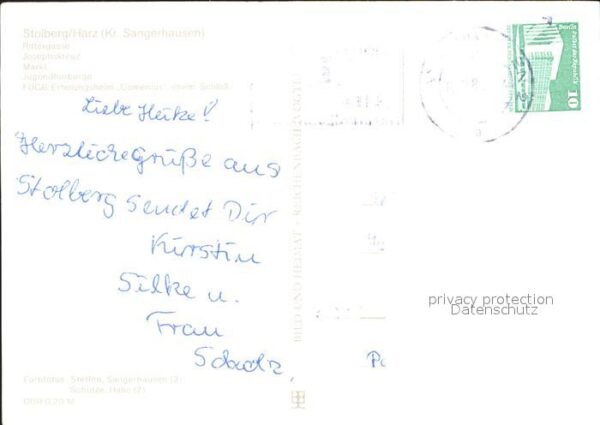 Stolberg/Harz (Kr. Sangerhausen)
Rittergasse
Josephskreuz
Markt
Jugendherberge
FDGB-Erholungsheim „Comenius“, ehem. Schloß
Liebe Heike!
Herzliche Grüße aus
Stolberg sendet Dir
Kirstin
Silke u.
Frau
Schatz
Farbfotos: Steffen, Sangerhausen (2)
Schütze, Halle (2)
DDR 0,20 M
BILD UND HEIMAT · REICHENBACH (VOGTL)
10
privacy protection
Datenschutz